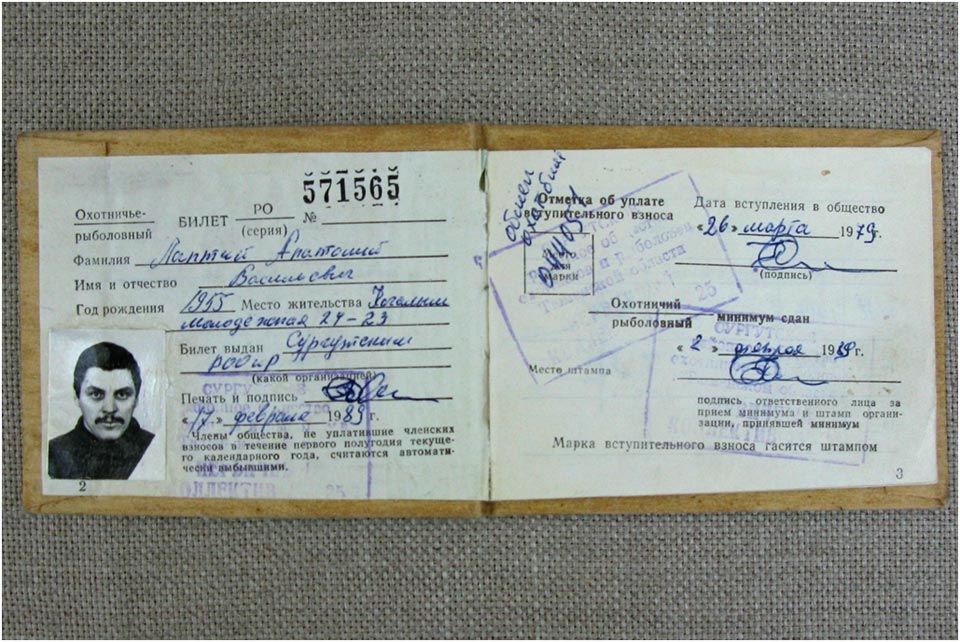 571565
Охотничье-
рыболовный
БИЛЕТ РО №
(серия)
Фамилия Лаптий Анатолий
Имя и отчество Васильевич
Год рождения 1955 Место жительства Когалым
Молодежная 24-23
Билет выдан Сургутским
РООиР
(какой организацией)
Печать и подпись
«17» февраля 1989 г.
Члены общества, не уплатившие членских
взносов в течение первого полугодия текуще-
го календарного года, считаются автомати-
чески выбывшими.
2
обмен
Отметка об уплате
вступительного взноса
Место
для
марки
Место штампа
Дата вступления в общество
«26» марта 1979г.
(подпись)
Охотничий
рыболовный минимум сдан
«2» февраля 1989г.
подпись ответственного лица за
прием минимума и штамп органи-
зации, принявшей минимум
Марка вступительного взноса гасится штампом
3
СУРГУТ
КОЛЛЕКТИВ
25